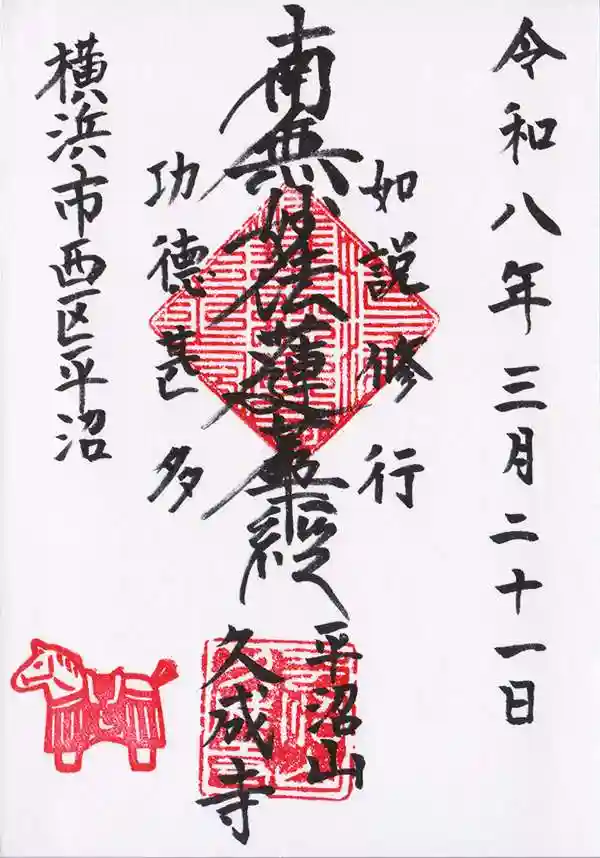 令和八年三月二十一日
如説修行
南無妙法蓮華経
功徳甚多
平沼山
久成寺
横浜市西区平沼